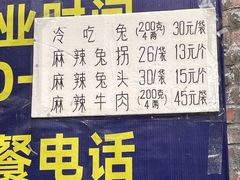 业时间
冷吃兔(200克4两)30元/袋
麻辣兔拐 26/袋 13元/个
麻辣兔头 30/袋 15元/个
麻辣牛肉(200克4两)45元/袋
0-
餐电话